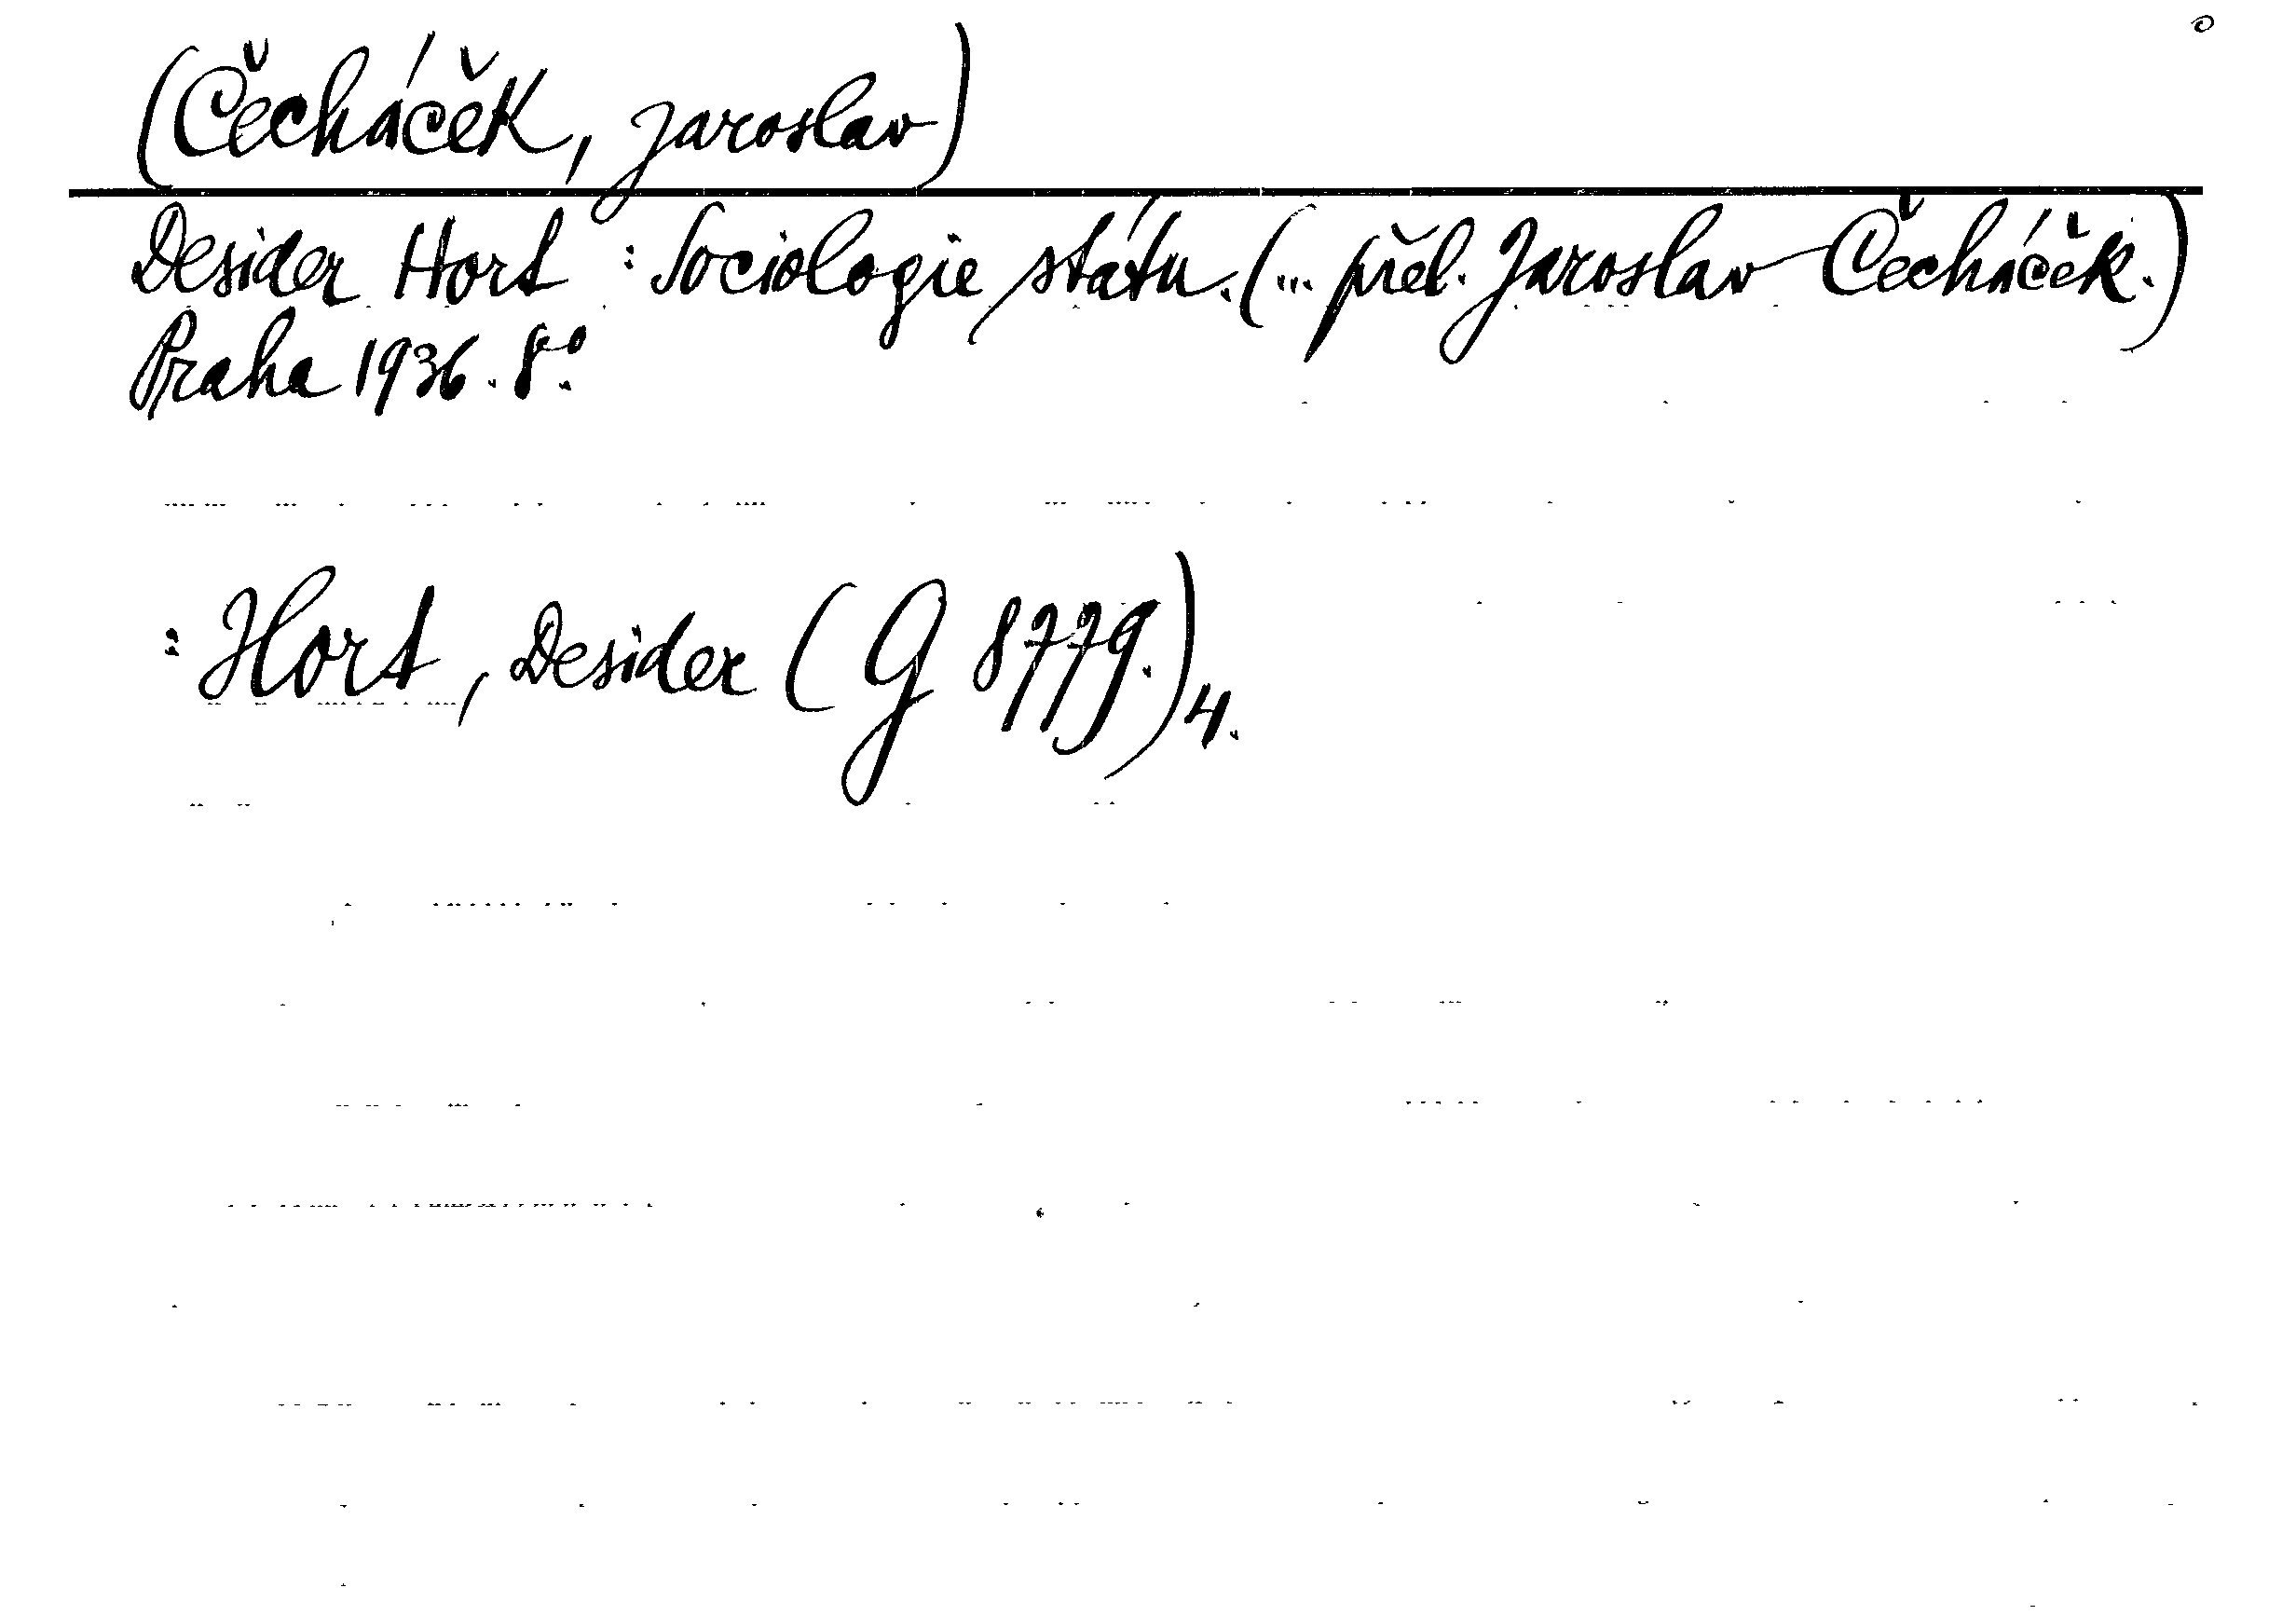 (Čecháček, Jaroslav)
Desider Hort : Sociologie státu. (... přel. Jaroslav Čecháček.)
Praha 1936. 8°.
: Hort, Desider (G 8779.)4.